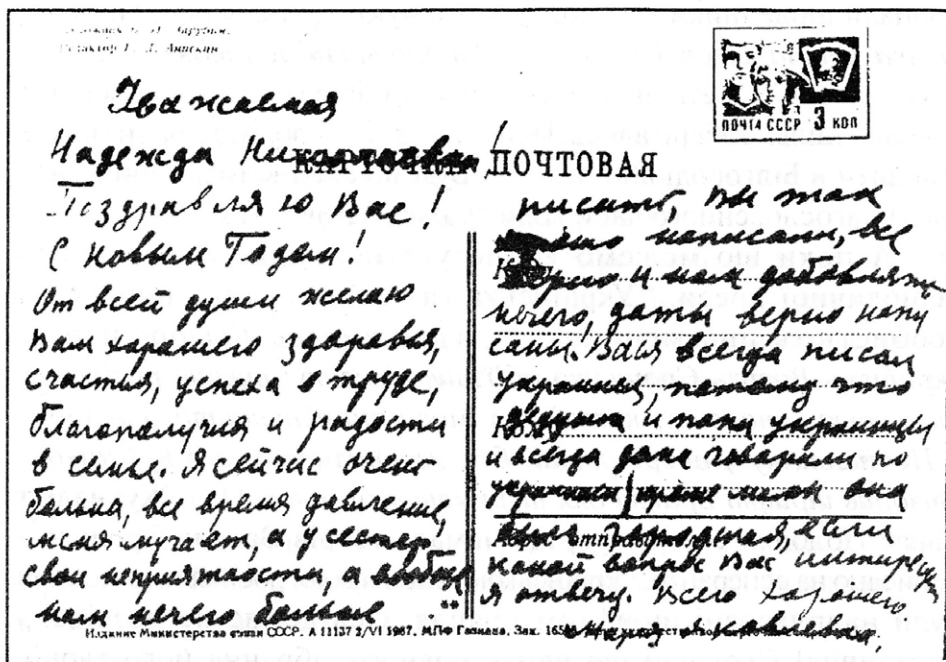 Редактор Г. Л. Анискин
ПОЧТА СССР 3 КОП
КАРТОЧКА ПОЧТОВАЯ
Уважаемая
Надежда
Поздравляю Вас!
С новым Годом!
От всей души желаю
вам харашего здаровья,
счастья, успеха в труде,
благапалучия и радости
в семье. Я сейчас очень
бальна, все время давление,
меня мучает, а у сестер
свои неприятности, а вообще
нам нечего больше
писать, вы так
написали, все
верно и нам добавлять
нечего, даты верно напи
саны. Вася всегда писал
украинец, патаму что
дедушка и папа украинцы
и всегда дома гаварили по
украински кроме мамы она
была если
какой вопрос Вас интересует
я отвечу. Всего харошего
Адрес отправителя
Издание Министерства связи СССР. А 11137 2/VI 1967. МПФ Гознака. Зак.